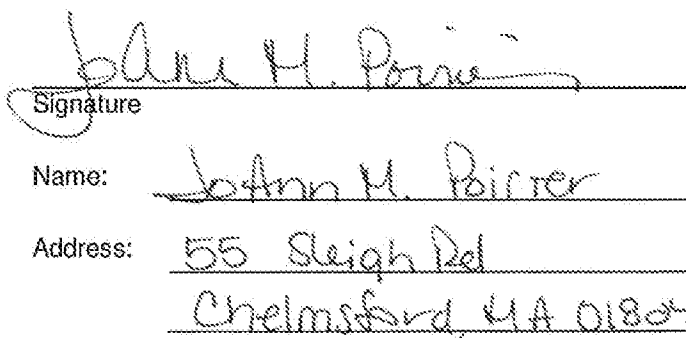 JoAnn M. Poirier
Signature
Name: JoAnn M. Poirier
Address: 55 Sleigh Rd
Chelmsford, MA 01824